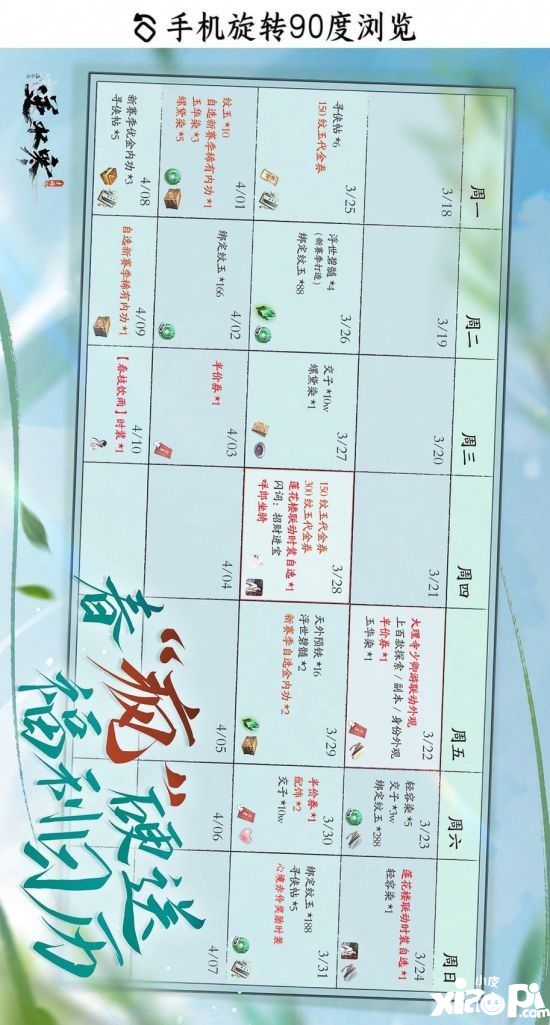 手机旋转90度浏览
逆水寒
春“疯”硬送
福利日历
周一
周二
周三
周四
周五
周六
周日
3/18
3/19
3/20
3/21
3/22
大理寺少卿游联动外观
上百款探索/副本/身份外观
半价券*1
玉华染*1
3/23
轻容染*5
交子*3w
绑定纹玉*288
3/24
莲花楼联动时装自选*1
轻容染*1
3/25
寻侠帖*6
150纹玉代金券
3/26
浮世碧髓*4
(新赛季打造)
绑定纹玉*88
3/27
交子*10w
螺黛染*1
3/28
150纹玉代金券
300纹玉代金券
莲花楼联动时装自选*1
闪词:招财进宝
呼郎坐骑
3/29
天外陨铁*16
浮世碧髓*2
新赛季自选金内功*2
3/30
半价券*1
配饰*2
交子*10w
3/31
绑定纹玉*188
寻侠帖*5
心魂赤伶奖励时装
4/01
纹玉*10
自选新赛季稀有内功*1
玉华染*3
螺黛染*5
4/02
绑定纹玉*166
4/03
半价券*1
4/04
4/05
4/06
4/07
4/08
新赛季优金内功*3
寻侠帖*5
4/09
自选新赛季稀有内功*1
4/10
【春枝饮雨】时装*1
小皮
xiaopi.com